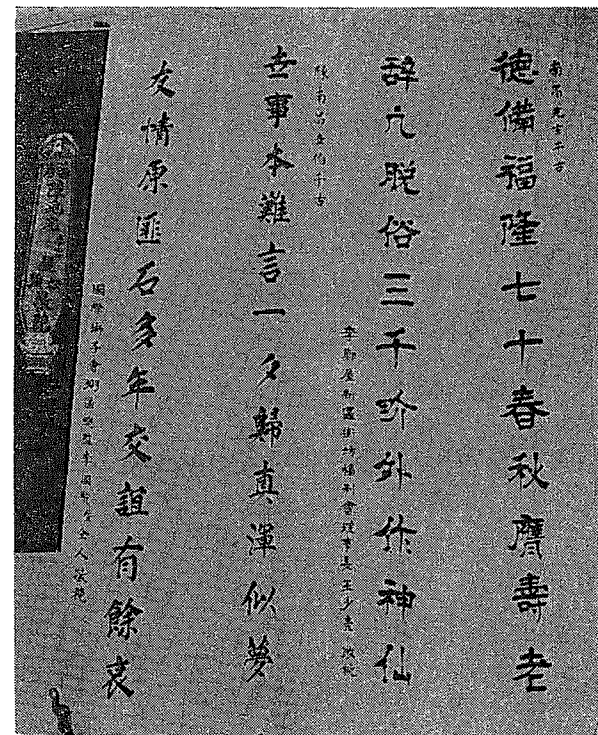 南昌先生千古
德備福隆七十春秋膺壽老
辭凡脫俗三千界外作神仙
李鄭屋新區街坊福利會理事長王少清敬輓
南昌世伯千古
世事本難言一夕歸真渾似夢
友情原匪石多年交誼有餘哀
國際獅子會
全人敬輓